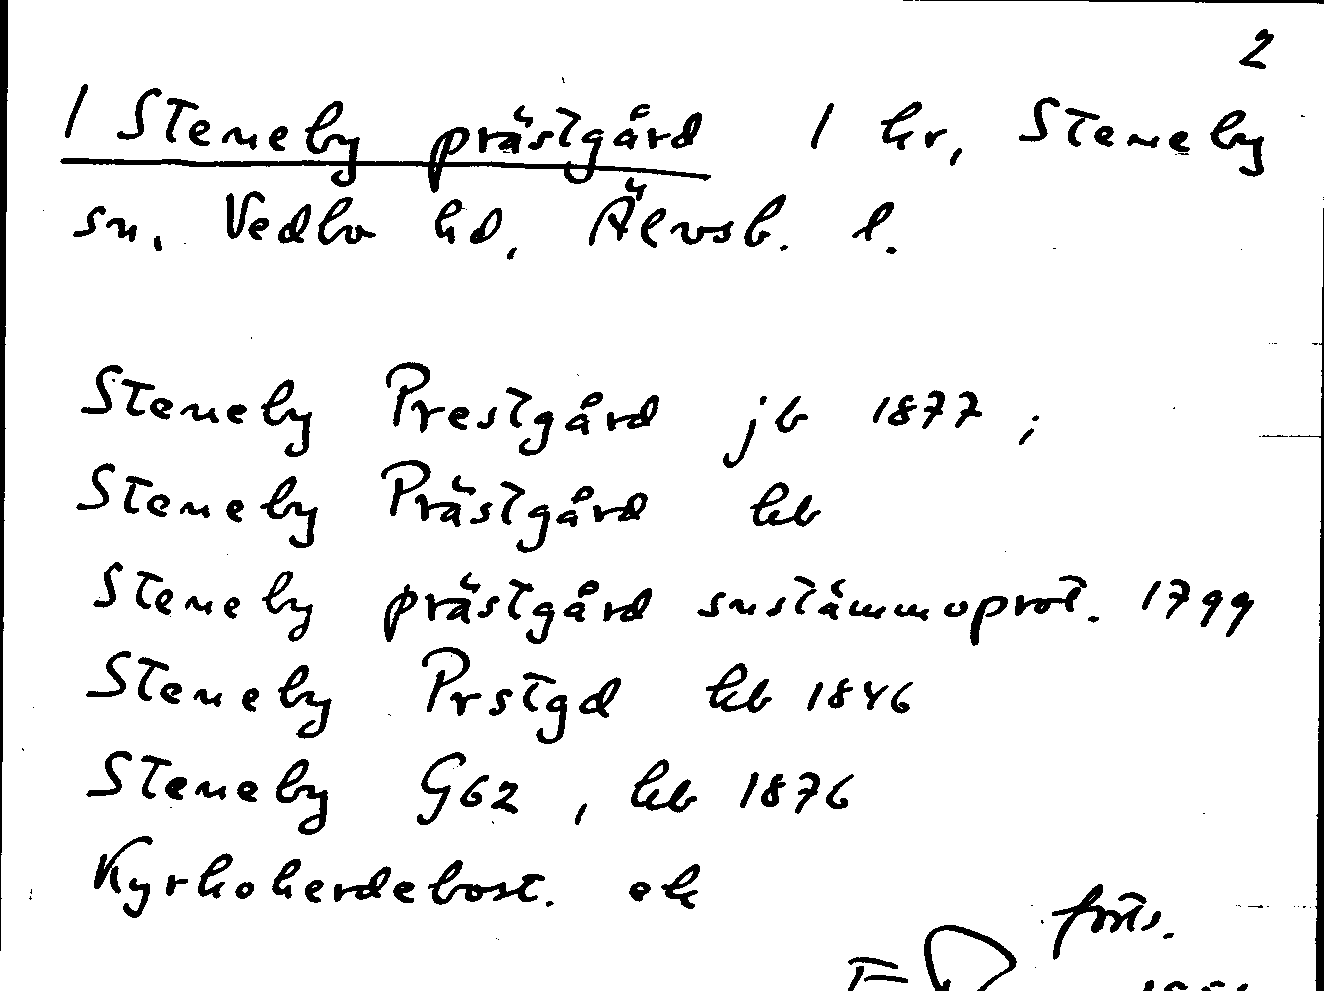 2
1 Steneby prästgård 1 hr, Steneby
sn. Vedbo hd, Älvsb. l.
Steneby Prestgård jb 1877 ;
Steneby Prästgård kb
Steneby prästgård snstämmoprot. 1799
Steneby Prstgd kb 1846
Steneby G62 , kb 1876
Kyrkoherdebost. ek
forts.